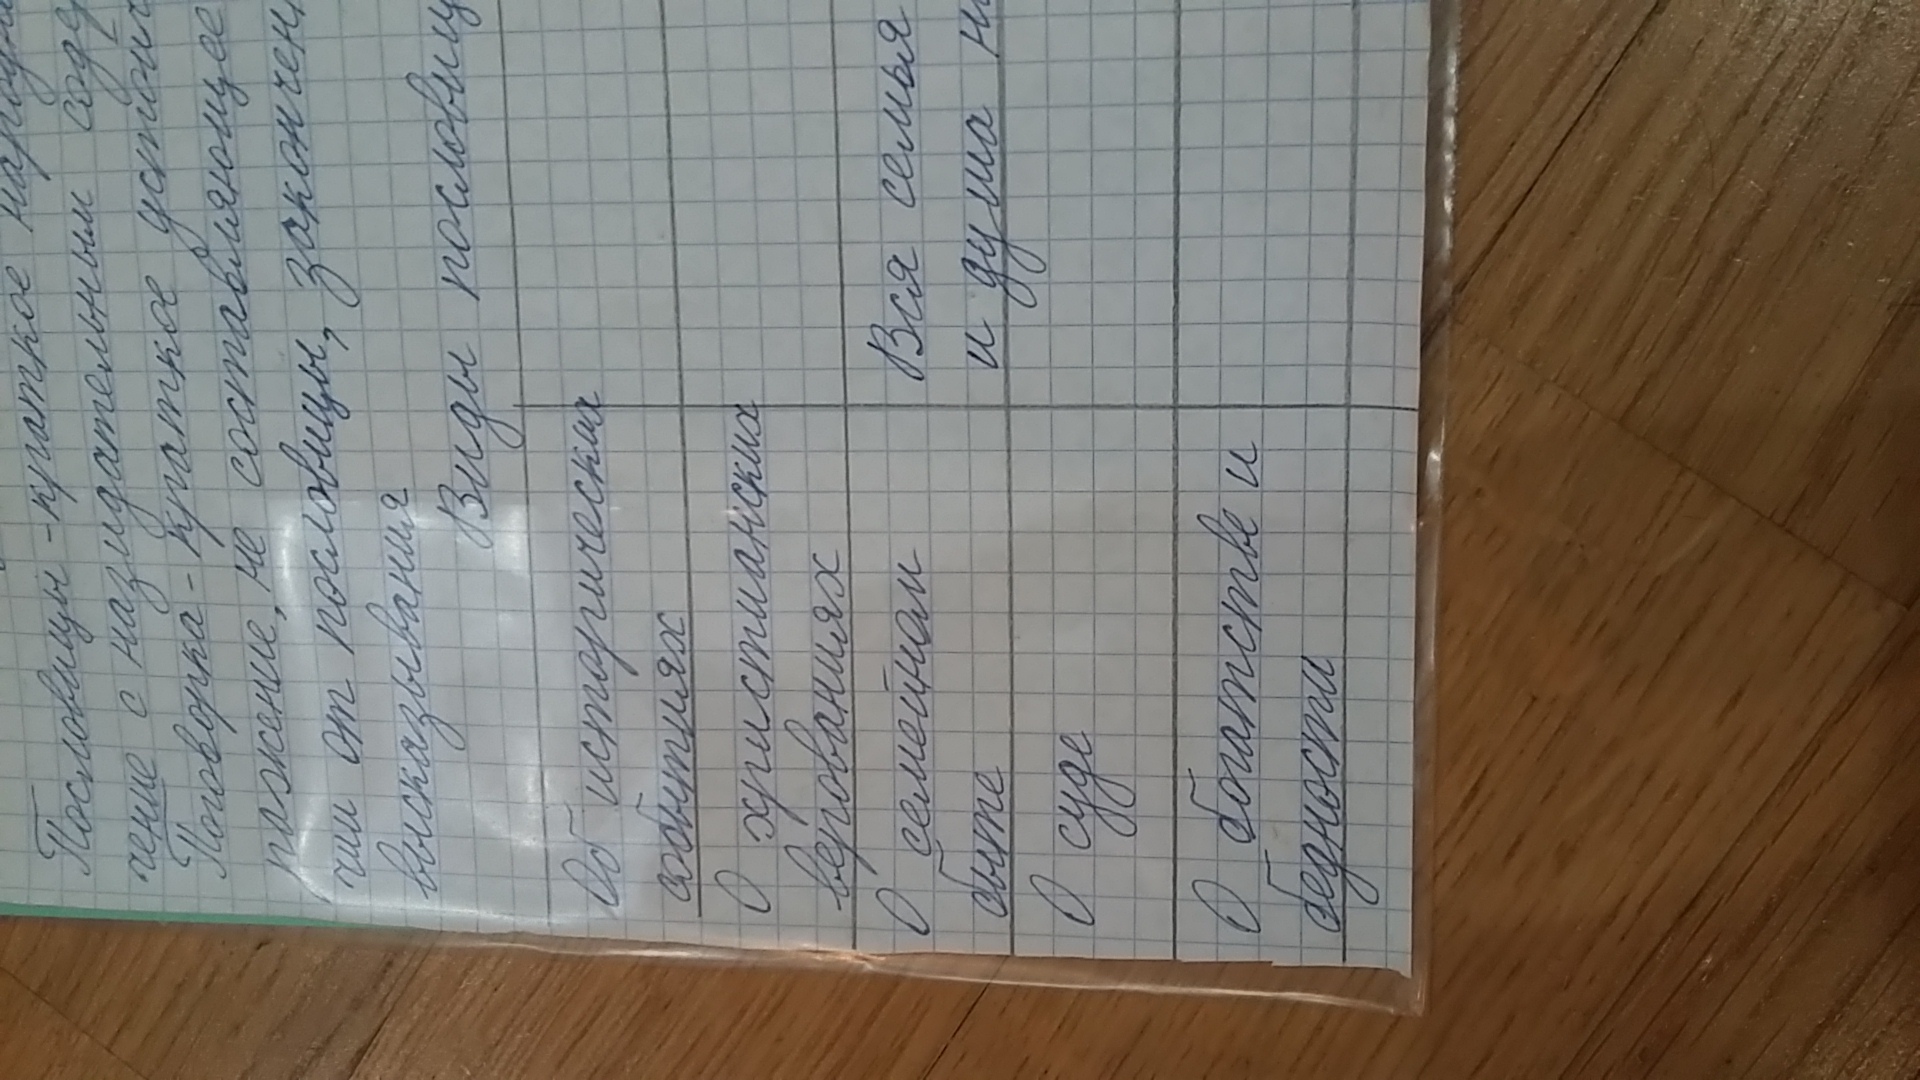 Пословицы - краткое народн
чение с назидательным сод
Поговорка - краткое устойч
ражение, не составляющее
чии от пословицы, закончен
высказывания
Виды пословиц
Об исторических
событиях
О христианских
верованиях
О семейном
быте
Вся семья
и душа н
О суде
О богатстве и
бедности